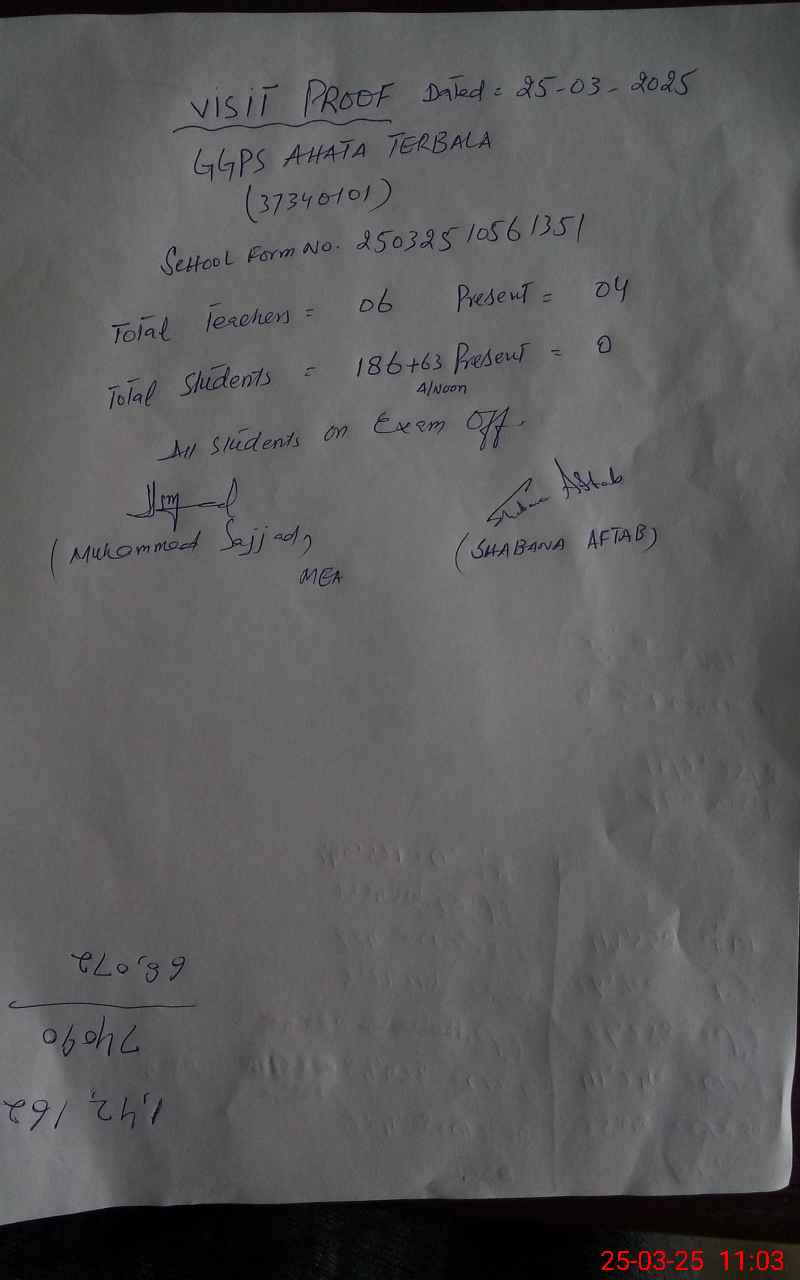 VISIT PROOF Dated = 25-03-2025
GGPS AHATA TERBALA
(37340101)
SCHOOL Form No. 25032510561351
Total Teachers = 06 Present = 04
Total Students = 186+63 Present = 0
A/Noon
All Students on Exam Off.
Aftab
(Muhammad Sajjad, (SHABANA AFTAB)
MEA
1,42,162
74090
68,072
25-03-25 11:03